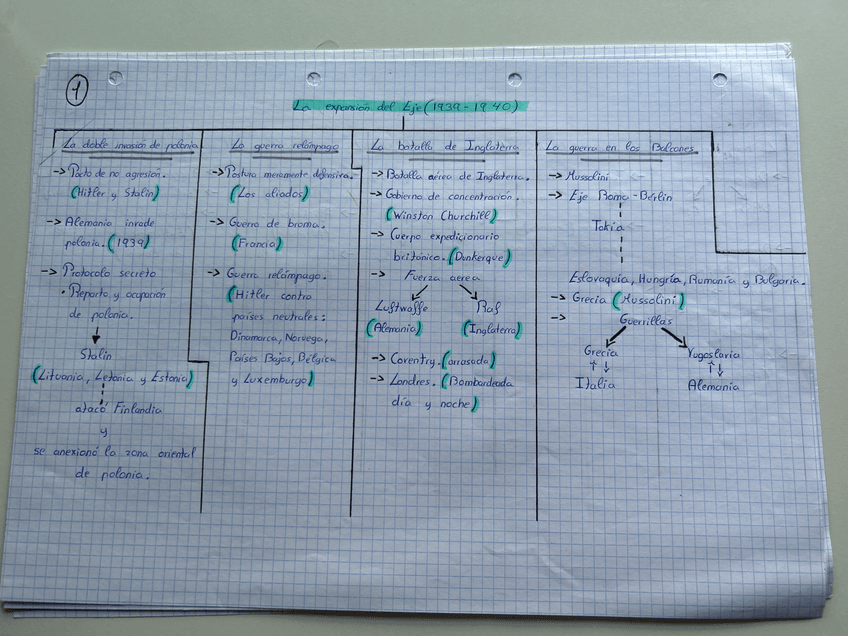 1
La expansión del Eje (1939-1940)
La doble invasión de polonia
-> Pacto de no agresión.
(Hitler y Stalin)
-> Alemania invade
polonia. (1939)
-> Protocolo secreto
• Reparto y ocupación
de polonia.
Stalin
(Lituania, Letonia y Estonia)
atacó Finlandia
y
se anexionó la zona oriental
de polonia.
La guerra relámpago
-> Postura meramente defensiva.
(Los aliados)
-> Guerra de broma.
(Francia)
-> Guerra relámpago.
(Hitler contra
países neutrales:
Dinamarca, Noruega,
Países Bajos, Bélgica
y Luxemburgo)
La batalla de Inglaterra
-> Batalla aérea de Inglaterra.
-> Gobierno de concentración.
(Winston Churchill)
-> Cuerpo expedicionario
británico. (Dunkerque)
-> Fuerza aerea
Luftwaffe Raf
(Alemania) (Inglaterra)
-> Coventry. (arrasada)
-> Londres. (Bombardeada
día y noche)
La guerra en los Balcanes
-> Mussolini
-> Eje Roma-Berlín
Tokia
Eslovaquía, Hungría, Rumanía y Bulgaria.
-> Grecia (Mussolini)
-> Guerrillas
Grecia Yugoslavia
↑↓ ↑↓
Italia Alemania